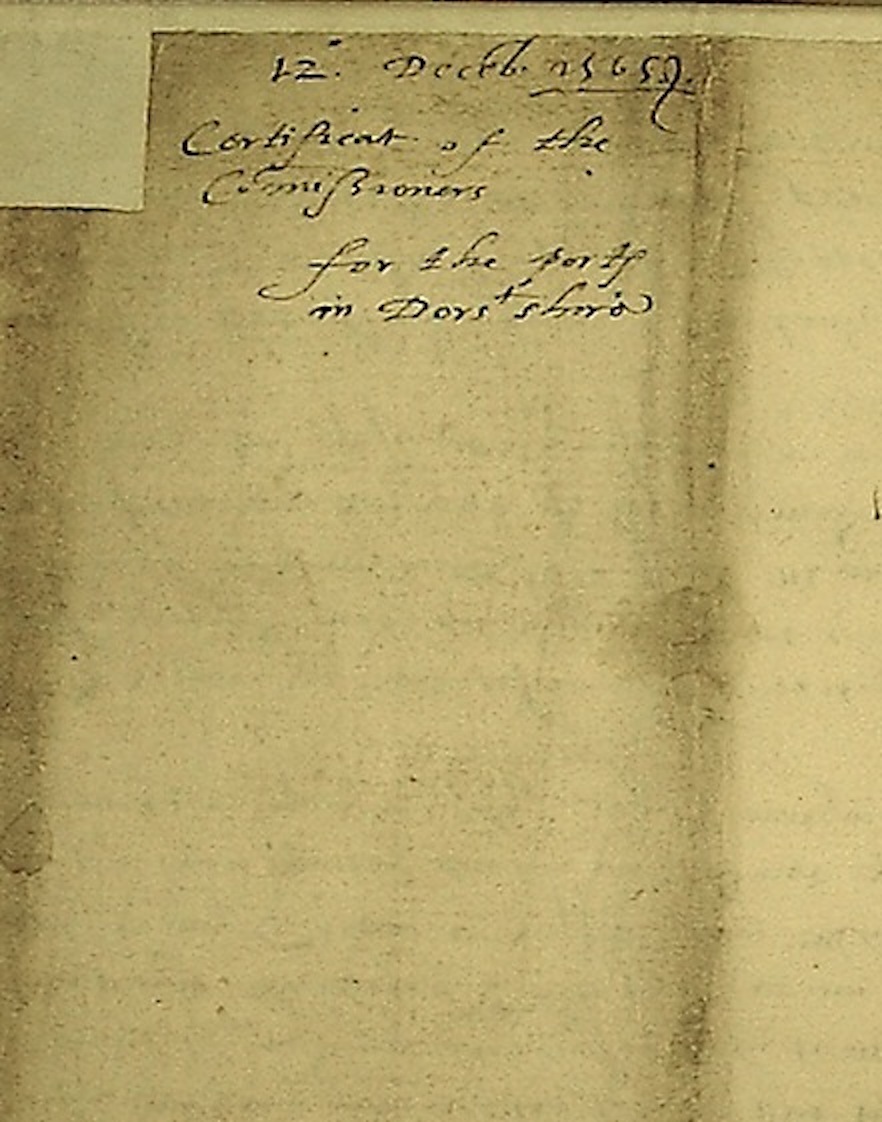 12. Decēb. 1565.
Certificat of the
Cōmissioners
for the portꝭ
in Dorsᵗ shire